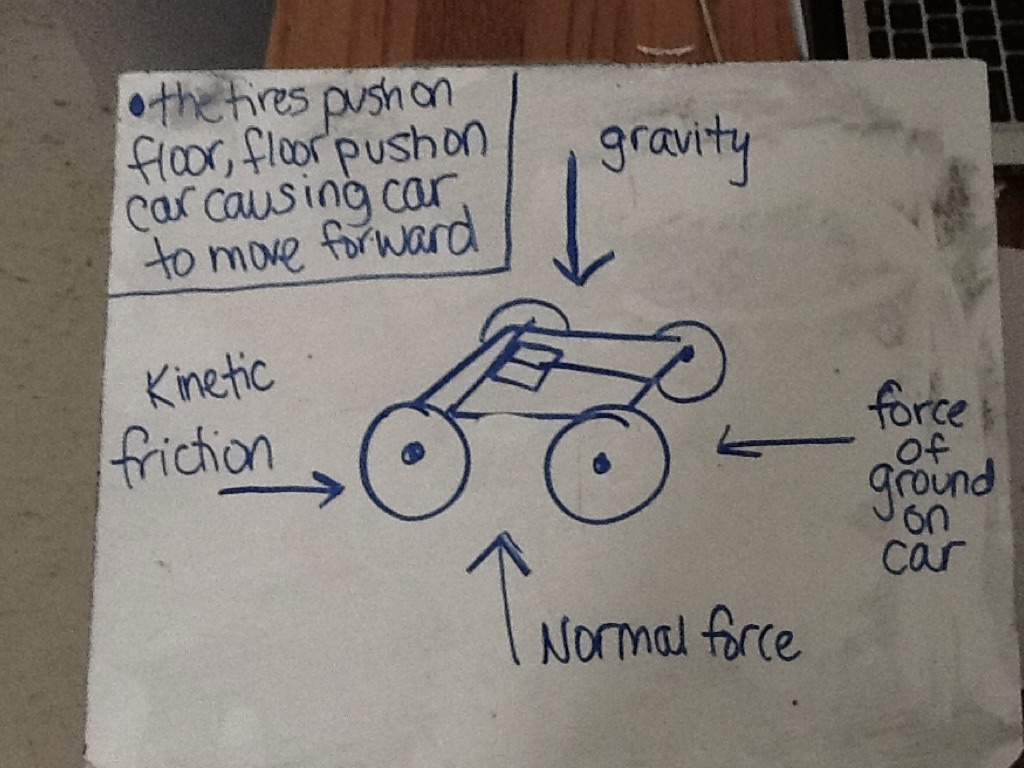 • the tires push on
floor, floor push on
car causing car
to move forward
gravity
Kinetic
friction
force
of
ground
on
car
Normal force